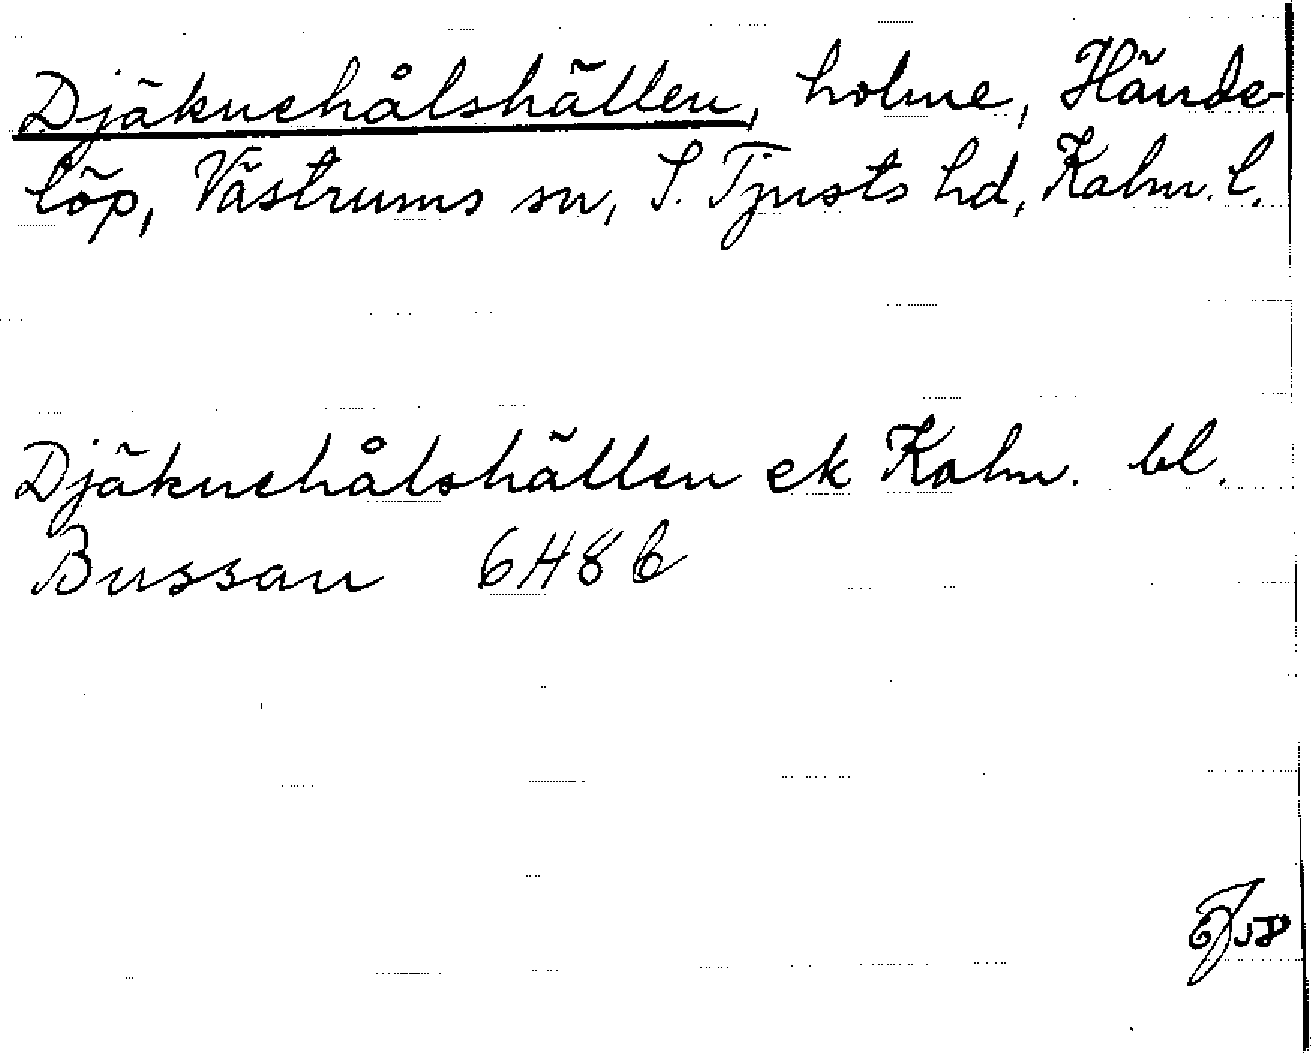 Djäknehålshällen, holme, Hände-
löp, Västrums sn, S. Tjusts hd, Kalm. l.
Djäknehålshällen ek Kalm. bl.
Bussan 6H8b